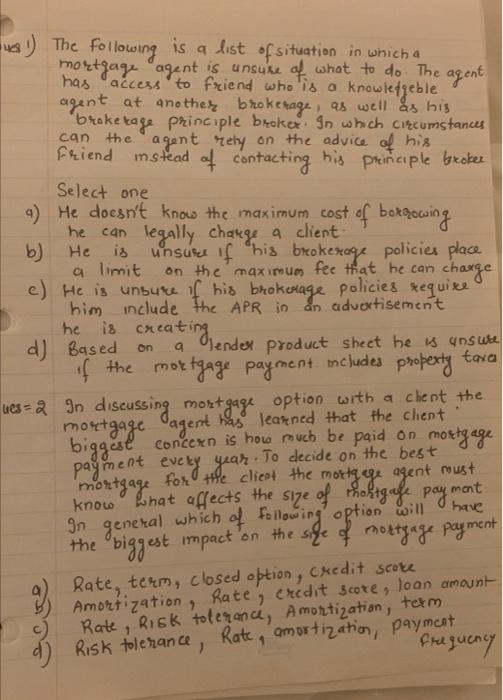 ues 1) The following is a list of situation in which a
mortgage agent is unsure of what to do. The agent
has access to friend who is a knowledgeble
agent at another brokerage, as well as his
brokerage principle broker. In which circumstances
can the agent rely on the advice of his
friend instead of contacting his principle broker
Select one
a) He doesn't know the maximum cost of borrowing
he can legally charge a client.
b) He is unsure if his brokerage policies place
a limit on the maximum fee that he can charge
c) He is unsure if his brokerage policies require
him include the APR in an advertisement
he is creating
d) Based on a lender product sheet he is unsure
if the mortgage payment includes property taxes
ues = 2 In discussing mortgage option with a client the
mortgage agent has learned that the client
biggest concern is how much be paid on mortgage
payment every year. To decide on the best
mortgage for the client the mortgage agent must
know what affects the size of mortgage payment
In general which of following option will have
the biggest impact on the size of mortgage payment
a) Rate, term, closed option, credit score
b) Amortization, Rate, credit score, loan amount
c) Rate, Risk tolerance, Amortization, term
d) Risk tolerance, Rate, amortization, payment
frequency